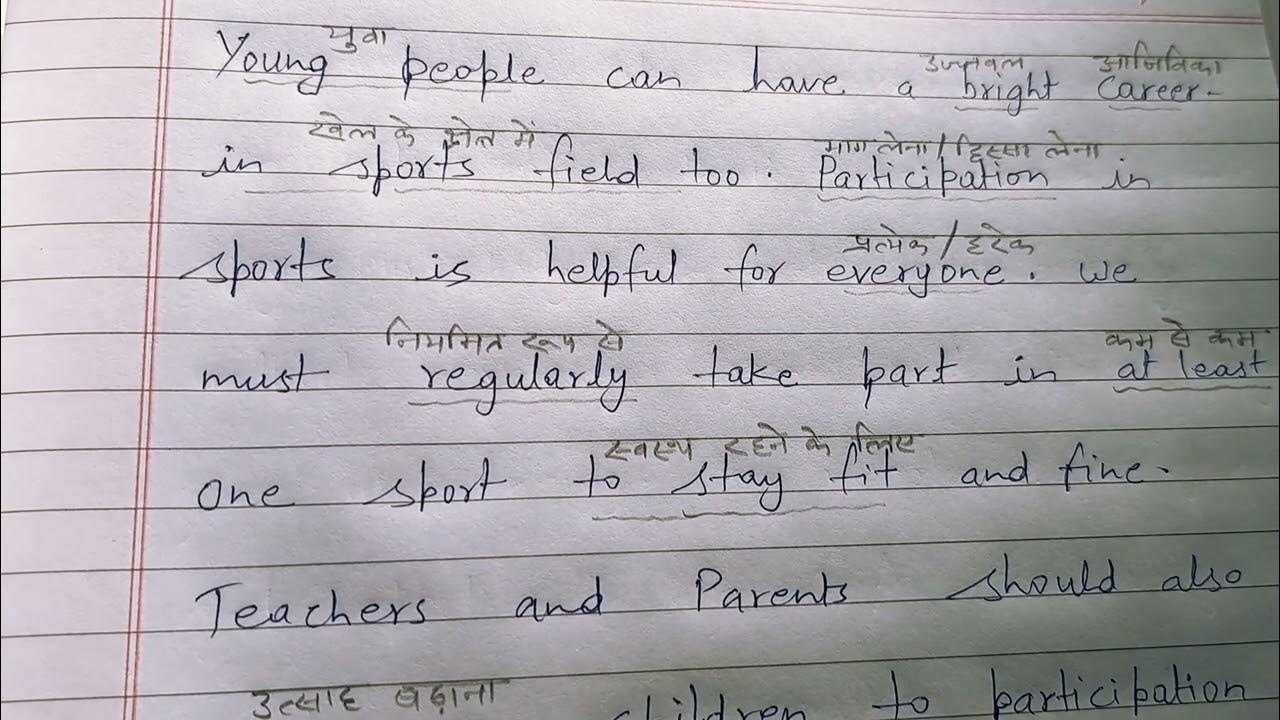 युवा
Young people can have a bright Career-
उज्जवल आजिविका
खेल के क्षेत्र में
in sports field too. Participation in
भाग लेना / हिस्सा लेना
प्रत्येक / हरेक
sports is helpful for everyone. We
नियमित रूप से कम से कम
must regularly take part in at least
स्वस्थ रहने के लिए
one sport to stay fit and fine.
Teachers and Parents should also
उत्साह बढ़ाना
children to participation